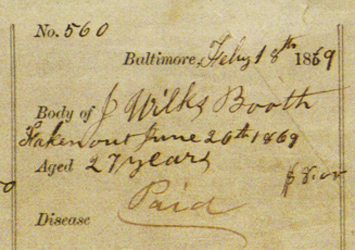 No. 560
Baltimore, Feby 18th 1869
Body of J Wilks Booth
Taken out June 20th 1869
Aged 27 years
$8.00
Paid
Disease